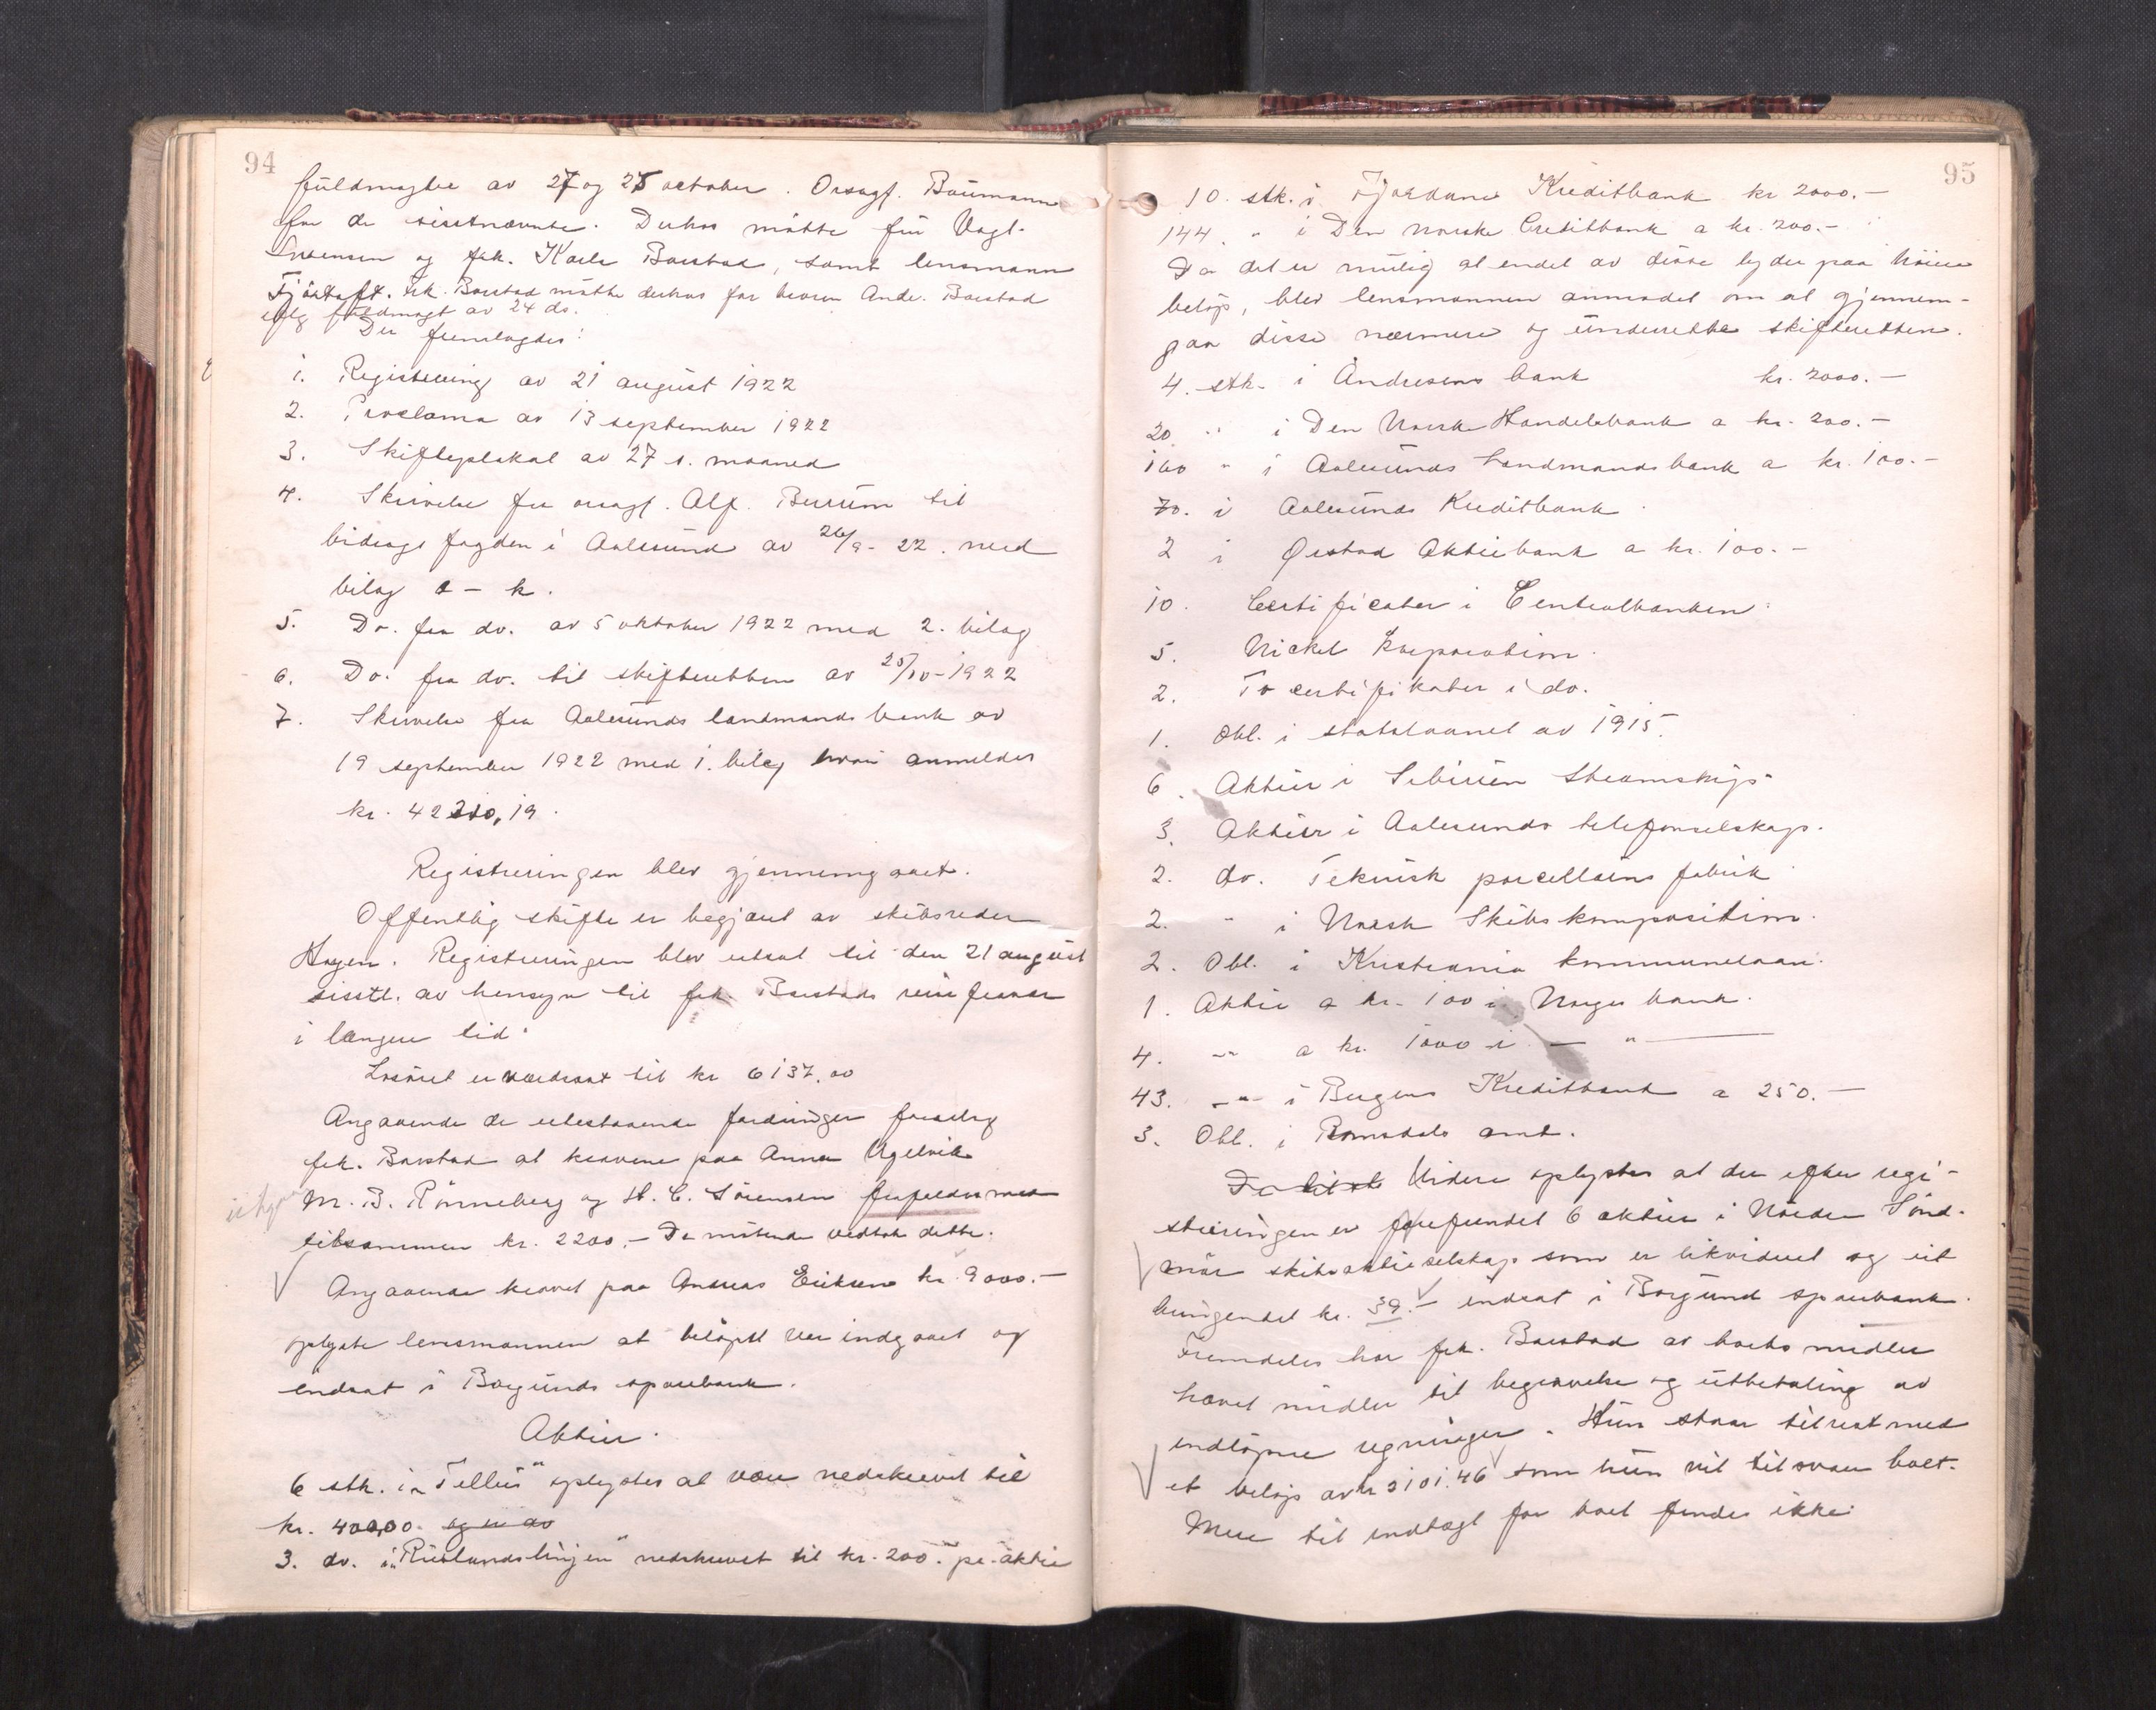 94
fuldmagter av 27 og 25 october. Orsagf. Baumann
for de sisstnævnte. Derhos møtte fru Vagt-
Svensen og frk. Karla Barstad, samt lensmann
Fjørtoft. Frk. Barstad møtte derhos for broren Andr. Barstad
ifølg fuldmagt av 24 ds.
Der fremlagdes:
1. Registrering av 21 august 1922
2. Proclama av 13 september 1922
3. Skifteplakat av 27 s. maaned
4. Skrivelse fra orsagf. Alf. Burum til
bidragsfogden i Aalesund av 26/9-22. med
bilag a - k.
5. Do. fra do. av 5 oktober 1922 med 2. bilag
6. Do. fra do. til skifteretten av 25/10-1922
7. Skrivelse fra Aalesunds landmandsbank av
19 september 1922 med 1. bilag hvori anmeldes
kr. 42210,19.
Registreringen blev gjennemgaaet.
Offentlig skifte er begjært av skibsreder
Hagen. Registreringen blev utsat til den 21 august
sisstl. av hensyn til frk. Barstads reise fravær
i længere tid.
Løsøret er værdsat til kr 6137.00
Angaaende de utestaaende fordringer foreslog
frk. Barstad at kravene paa Anna Ugelvik
M. B. Rønneberg og H. C. Sørensen frafaldes med
tilsammen kr. 2200.- De møtende vedtok dette.
Angaaende kravet paa Andreas Eriksen kr. 9000.-
oplyste lensmannen at beløpet var indgaaet og
indsat i Borgunds sparebank.
Aktier.
6 stk. i "Tellus" oplystes at være nedskrevet til
kr. 400,00. og er av
3. do. i "Ruslandslinjen" nedskrevet til kr. 200.- pr. aktie
95
10. stk. i Fjordane Kreditbank kr 2000.-
144. " i Den norske Creditbank a kr. 200.-
Da det er mulig at endel av disse lyder paa høiere
beløp, blev lensmannen anmodet om at gjennem-
gaa disse nærmere og underrette skifteretten.
4. stk. i Andresens bank kr. 2000.-
20. " i Den Norske Handelsbank a kr. 200.-
100 " i Aalesunds Landmandsbank a kr. 100.-
70. i Aalesunds Kreditbank.
2 i Ørstad Aktiebank a kr. 100.-
10. Certificater i Centralbanken.
5. Nickel Korporation.
2. To certifikater i do.
1. Obl. i statslaanet av 1915.
6. Aktier i Sibirien Steamskips
3. Aktier i Aalesunds telefonselskap.
2. do. Teknisk porcellæns fabrik
2. " i Norsk Skibskomposition.
2. Obl. i Kristiania kommunelaan.
1. Aktie a kr. 100 i Norges bank.
4. -"- a kr. 1000 i - " -
43. -"- i Bergens Kreditbank a 250.-
3. Obl. i Romsdals amt.
Videre oplystes at der efter regi-
streringen er forefundet 6 aktier i Norden Sønd-
mør skibsaktieselskap som er likvidert og ut
bringendet kr. 39.- indsat i Borgund sparebank.
Fremdeles har frk. Barstad av boets midler
hævet midler til begravelse og utbetaling av
indløpne regninger. Hun staar tilrest med
et beløp av kr 3101.46 som hun vil tilsvare boet.
Mere til indtægt for boet findes ikke.